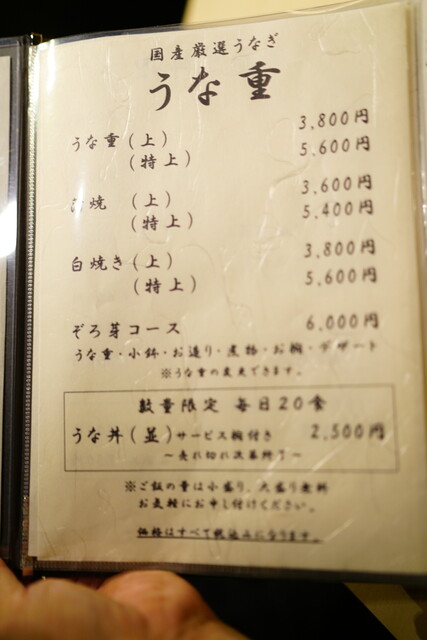 国産厳選うなぎ
うな重
うな重(上) 3,800円
(特上) 5,600円
焼 (上) 3,600円
(特上) 5,400円
白焼き(上) 3,800円
(特上) 5,600円
ぞろ芽コース 6,000円
うな重・小鉢・お造り・煮物・お椀・デザート
※うな重の変更できます。
数量限定 毎日20食
うな丼(並)サービス椀付き 2,500円
～売れ切れ次第終了～
※ご飯の量は小盛り、大盛り無料
お気軽にお申し付けください。
価格はすべて税込みになります。